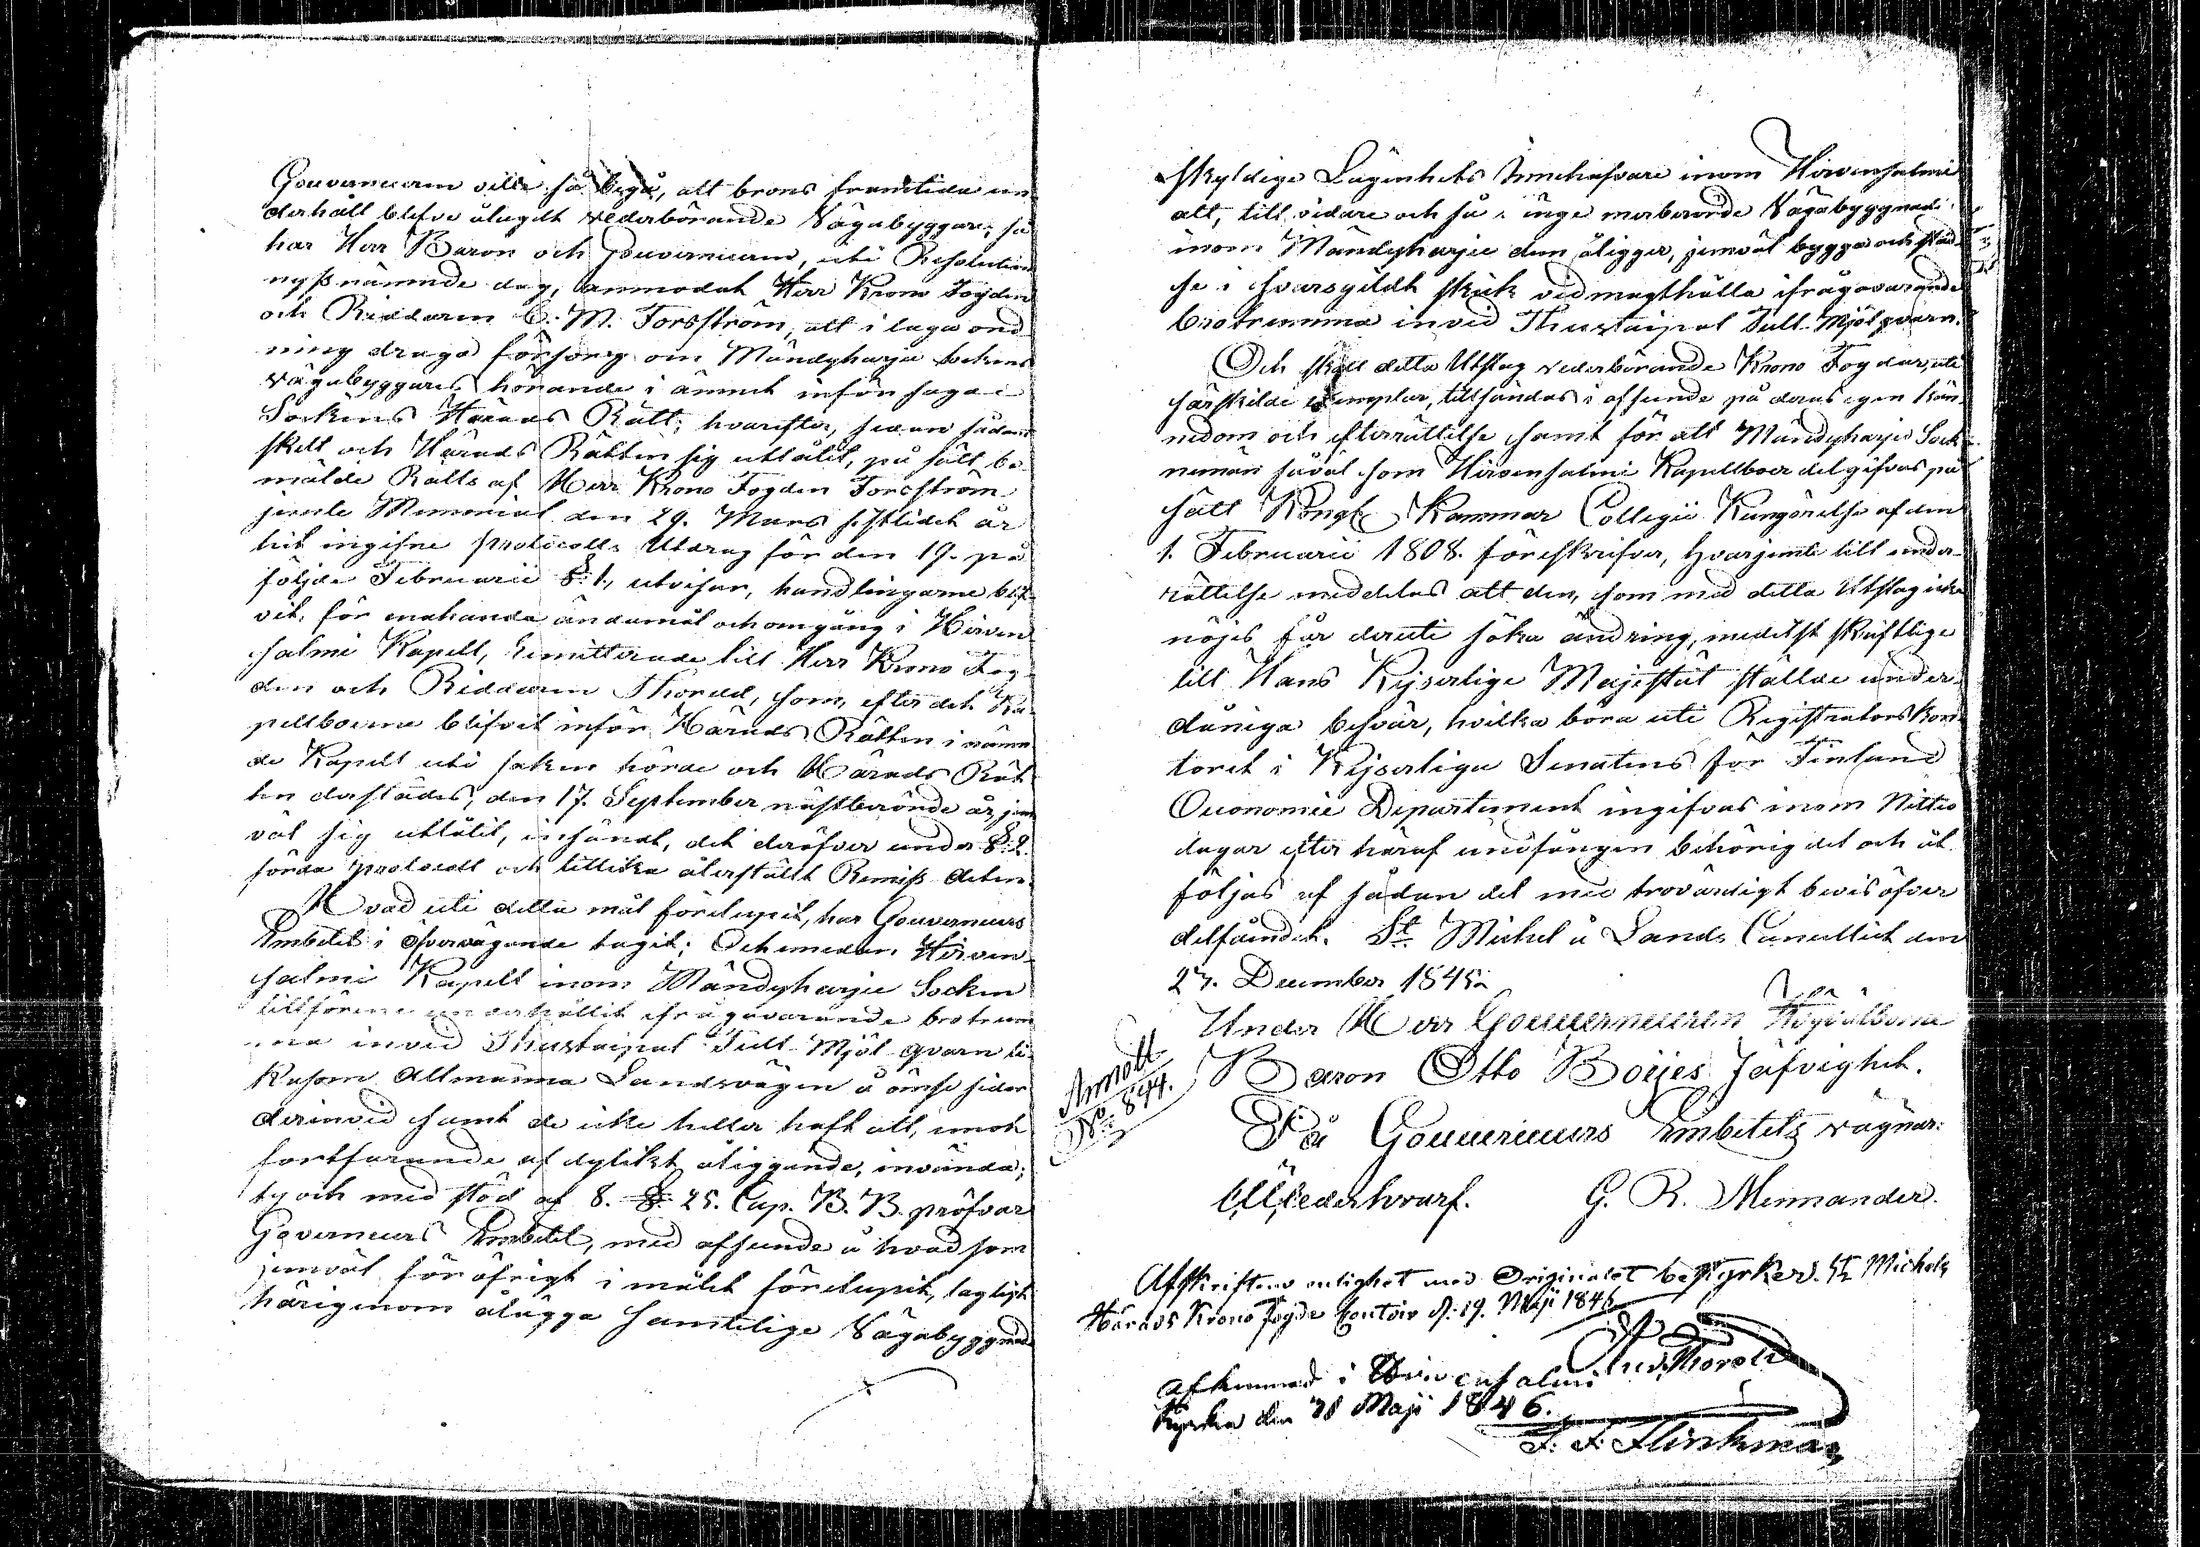 Gouverneuren ville så begå, att brons framtida un
derhåll blefve ålagdt vederbörande Vägabyggare; så
har Herr Baron och Gouverneuren, uti Resolution
nyssnämnde dag, anmodat Herr Krono Fogden
och Riddaren C. M. Forsström, att i laga ord
ning draga försorg om Mändyharju Sockens
vägabyggares hörande i ämnet inför sagde
Sockens Härads Rätt; hvarefter, sedan sådant
skett och Härads Rätten sig utlåtit, på sätt be
mälde Rätts af Herr Krono Fogden Forsström
jemte Memorial den 29. Mars sistlidet år
hit ingifne protocolls Utdrag för den 19. på
följde Februarii §. 1., utvisar, handlingarne blif
vit, för enahanda ändamål och omgång i Hirven
salmi Kapell, remitterade till Herr Krono Fog
den och Riddaren Thoreld, som, efter det Ka
pellboerne blifvit inför Härads Rätten i nämn
de Kapell uti saken hörde och Härads Rät
ten derstädes, den 17. September nästberörde år, jem
väl sig utlåtit, insändt, det deröfver under §. 2.
förda protocoll och tillika återställt Remiss acten.
Hvad uti detta mål förelupit, har Gouverneurs
Embetet i öfvervägande tagit; Och emedan Hirven
salmi Kapell inom Mändyharju Socken
tillförene underhållit ifrågavarande brotrum
ma invid Thustaipal Tull Mjöl qvarn li
kasom Allmänna Landsvägen å ömse sidor
derinvid samt de icke heller haft att, emot
fortfarande af dylikt åliggande, invända;
ty och med stöd af 8. §. 25. Cap. B. B. pröfvar
Governeurs Embetet, med afseende å hvad som
jemväl föröfrigt i målet förelupit, lagligt
härigenom ålägga samtelige Vägabyggnads
skyldige Lägenhets Innehafvare inom Hirvensalmi
att, till vidare och så länge merberörde Vägabyggnad
inom Mändyharju dem åligger, jemväl bygga och städ
se i försvarsgildt skick vidmagthålla ifrågavarande
brotrumma invid Thustaipal Tull Mjölqvarn.
Och skall detta Utslag vederbörande Krono Fogdar, uti
särskilde exemplar, tillsändas i afseende på deras egen kän
nedom och efterrättelse samt för att Mändyharju Sock
nemän såväl som Hirvensalmi Kapellboer delgifvas på
sätt Kongl. Kammar Collegii Kungörelse af den
1. Februarii 1808. föreskrifver, hvarjemte till under
rättelse meddelas att den, som med detta Utslag icke
nöjes får deruti söka ändring, medelst skriftlige
till Hans Kejserlige Majestät ställde under
dåniga besvär, hvilka böra uti Registrators Kon
toret i Kejserliga Senatens för Finland
Oeconomie Departement ingifvas inom Nittio
dagar efter häraf undfången behörig del och åt
följas af sådan del med trovärdigt bevis öfver
delfåendet. St. Michel å Lands Cancelliet den
27. December 1845.
Under Herr Gouverneuren Högvälborne
Baron Otto Boijes Jäfvighet.
På Gouverneurs Embetets vägnar:
Cederhvarf. G. R. Mennander.
Anslått
No 844.
Afskriftens enlighet med Originalet bestyrker. St. Michels
Härads Krono Fogde Contoir d. 19. Maji 1846
And. Thoreld
afkunnad i Hirvensalmi
Kyrka den 31 Maji 1846.
F. F. Flinkman